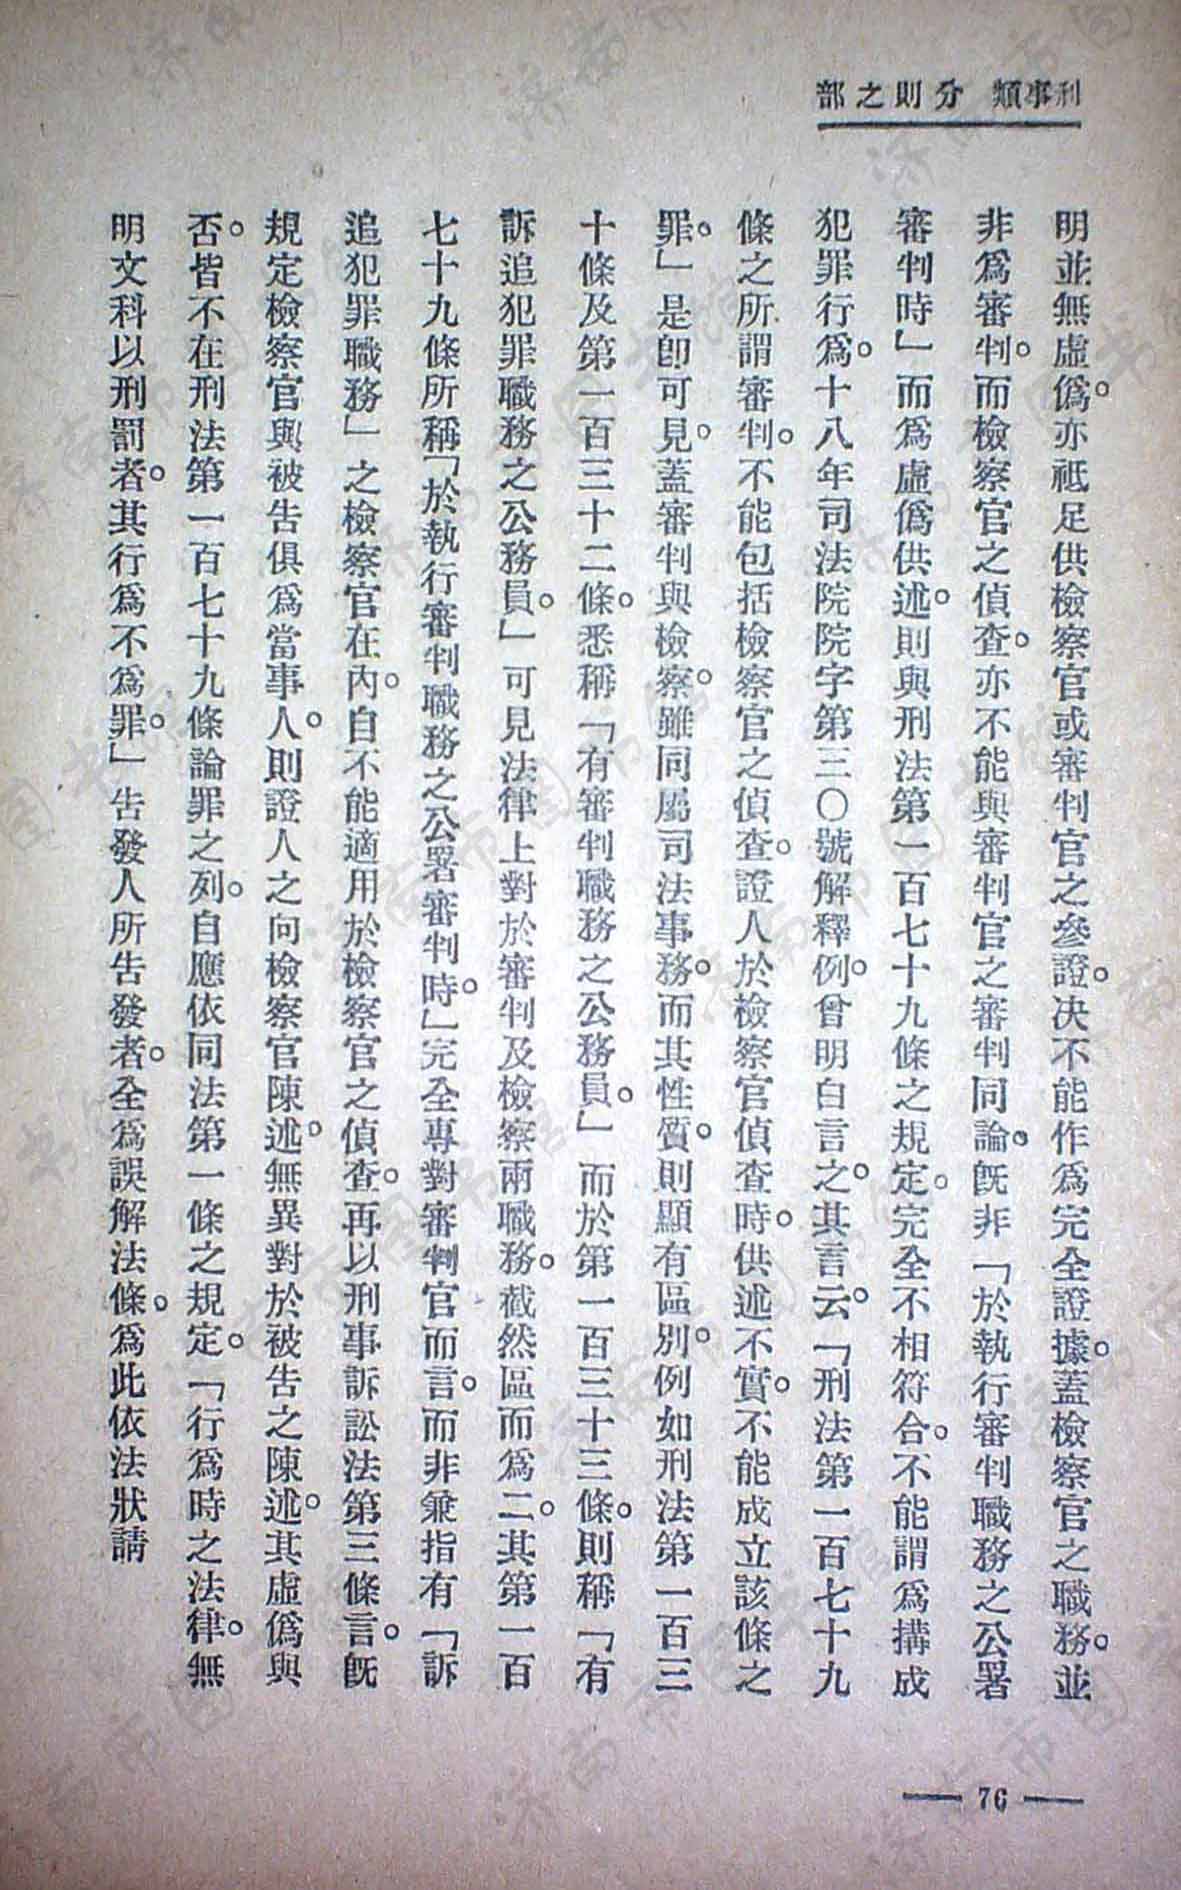 刑事類 分則之部
明並無虛僞。亦祗足供檢察官或審判官之參證。决不能作爲完全證據。蓋檢察官之職務。並
非爲審判。而檢察官之偵查。亦不能與審判官之審判同論。旣非「於執行審判職務之公署
審判時」而爲虛僞供述。則與刑法第一百七十九條之規定。完全不相符合。不能謂爲搆成
犯罪行爲。十八年司法院院字第三〇號解釋例。曾明白言之。其言云。「刑法第一百七十九
條之所謂審判。不能包括檢察官之偵查。證人於檢察官偵查時。供述不實。不能成立該條之
罪。」是卽可見。蓋審判與檢察。雖同屬司法事務。而其性質。則顯有區別。例如刑法第一百三
十條及第一百三十二條。悉稱「有審判職務之公務員。」而於第一百三十三條。則稱「有
訴追犯罪職務之公務員。」可見法律上對於審判及檢察兩職務。截然區而爲二。其第一百
七十九條所稱「於執行審判職務之公署審判時。」完全專對審判官而言。而非兼指有「訴
追犯罪職務」之檢察官在內。自不能適用於檢察官之偵查。再以刑事訴訟法第三條言。旣
規定檢察官與被告俱爲當事人。則證人之向檢察官陳述。無異對於被告之陳述。其虛僞與
否。皆不在刑法第一百七十九條論罪之列。自應依同法第一條之規定。「行爲時之法律。無
明文科以刑罰者。其行爲不爲罪。」告發人所告發者。全爲誤解法條。爲此依法狀請
76
济南市图书馆